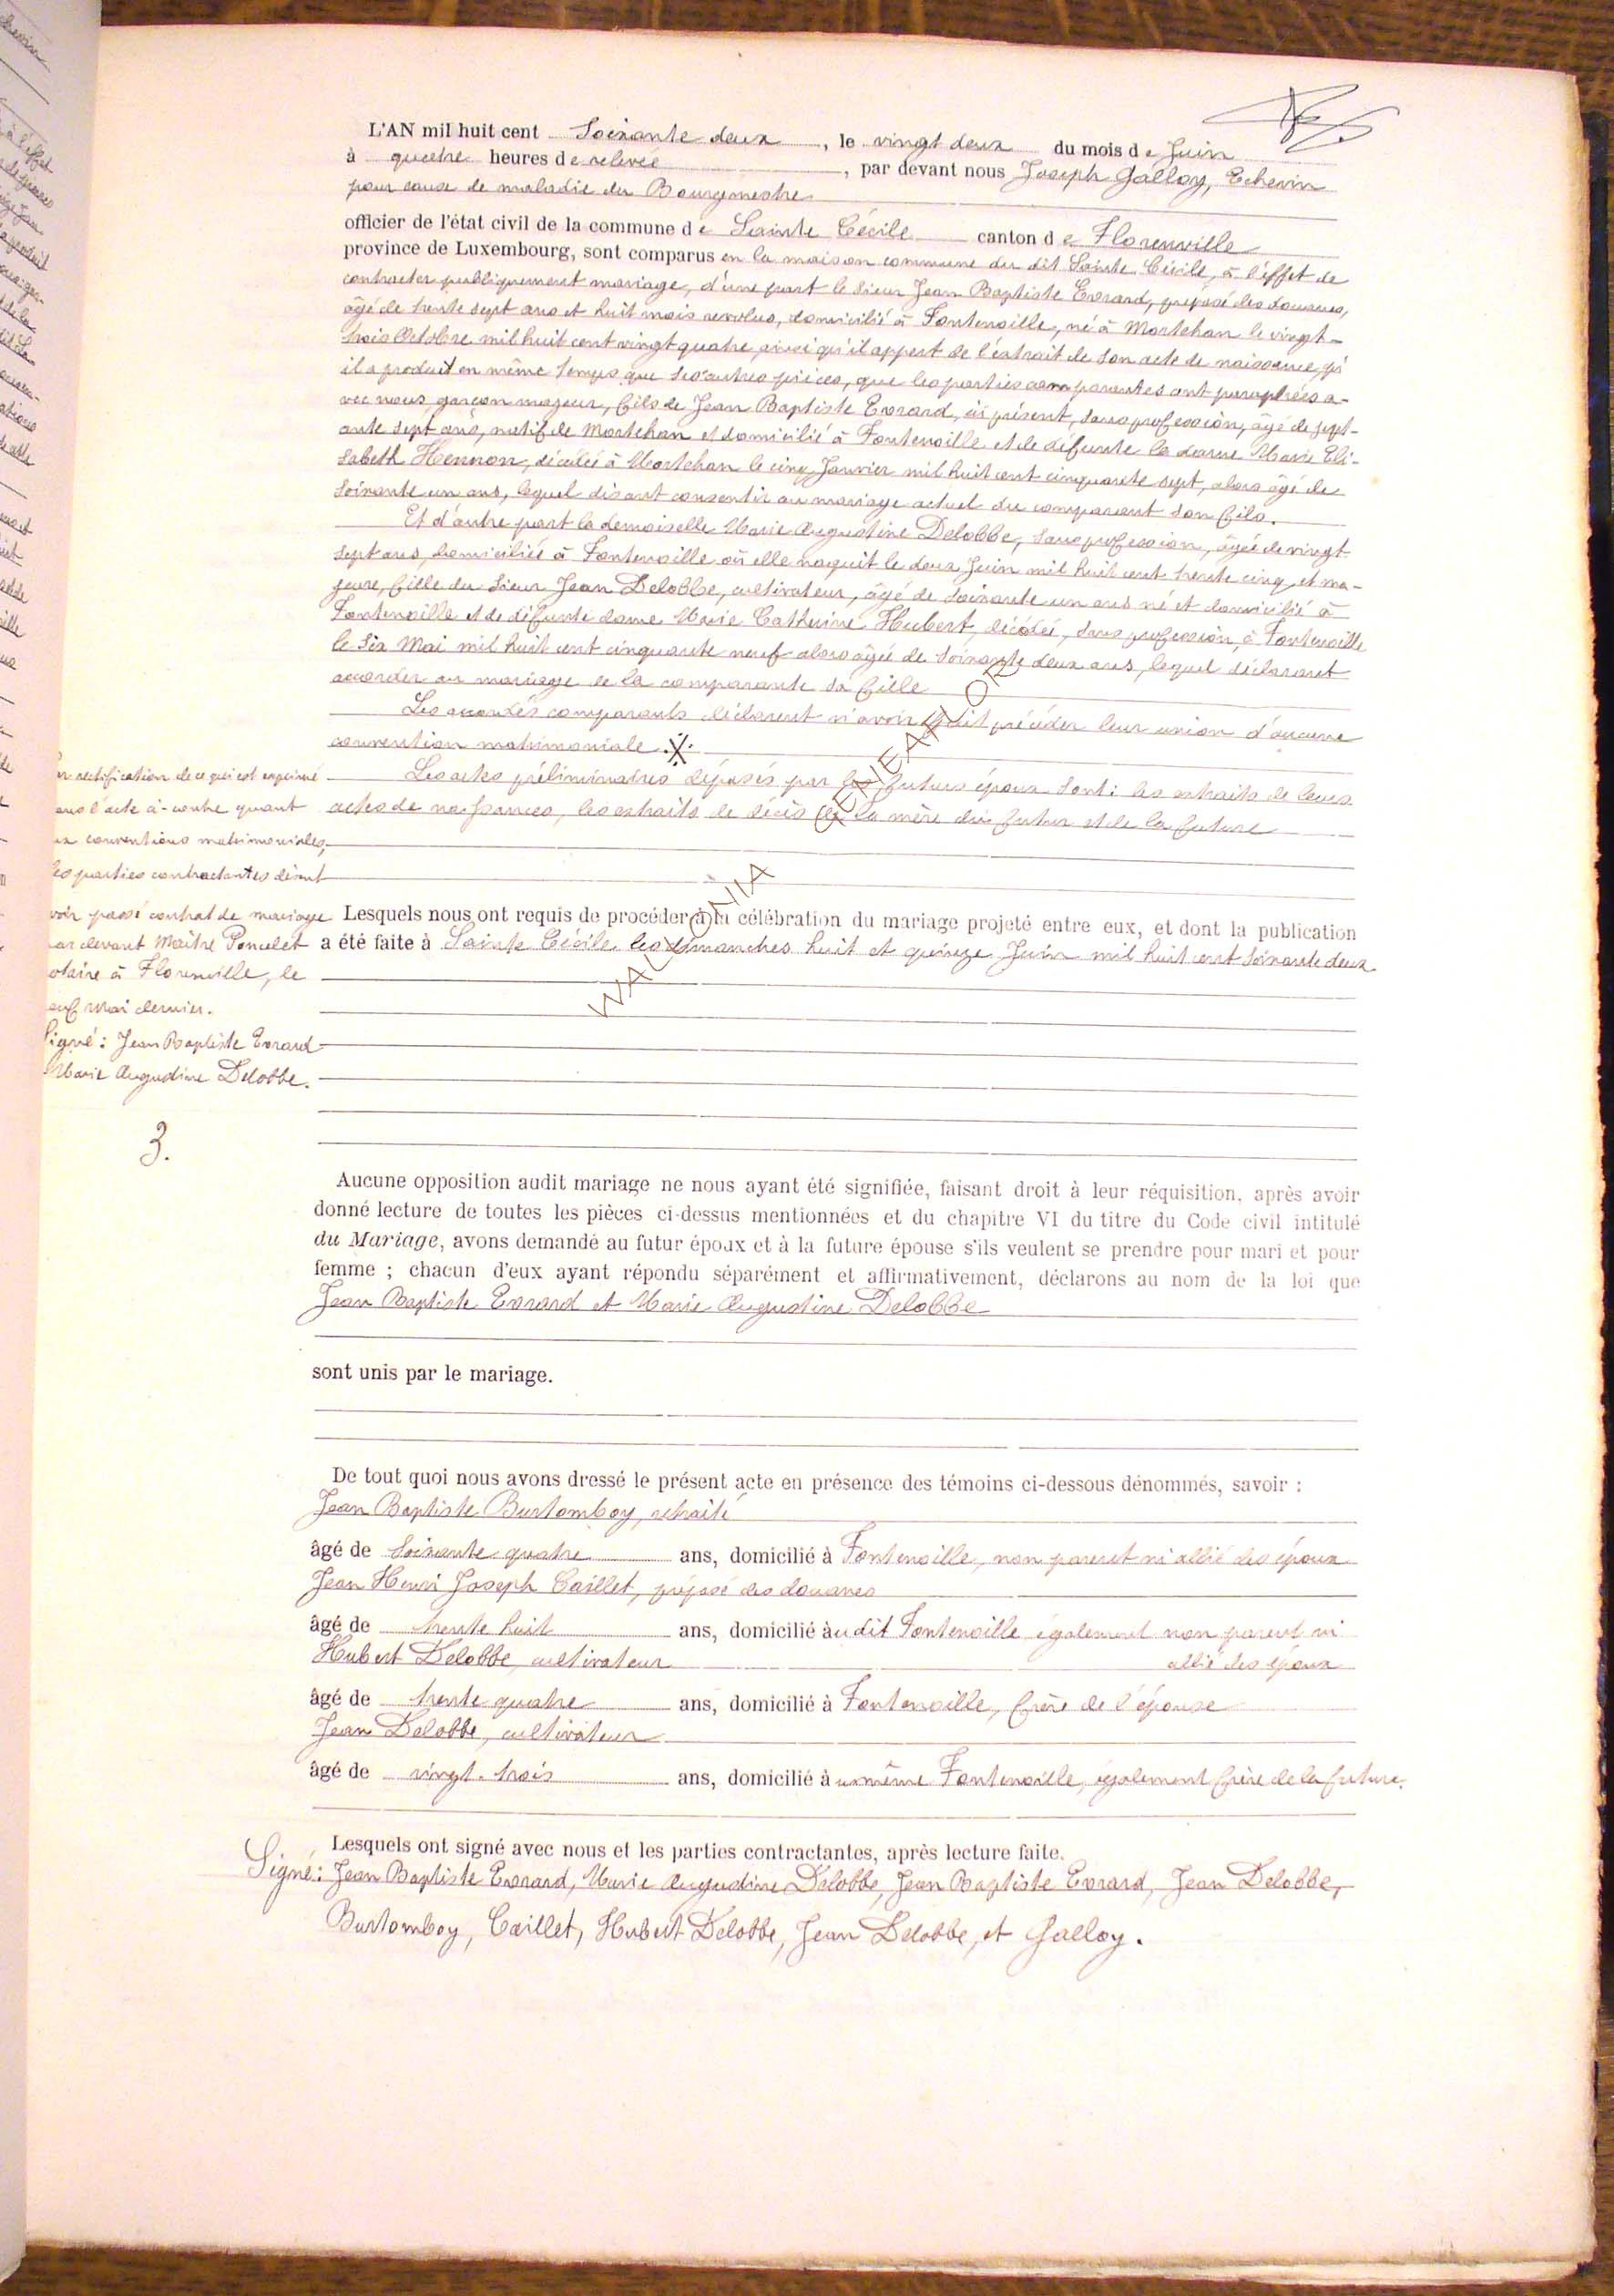 L'AN mil huit cent Soixante deux, le vingt deux du mois de Juin
à quatre heures de relevée, par devant nous Joseph Galloy, Echevin
pour cause de maladie du Bourgmestre
officier de l'état civil de la commune de Sainte Cécile canton de Florenville
province de Luxembourg, sont comparus en la maison commune du dit Sainte Cécile, à l'éffet de
contracter publiquement mariage, d'une part le Sieur Jean Baptiste Evrard, préposé des douanes,
âgé de trente sept ans et huit mois revolus, domicilié à Fontenoille, né à Mortehan le vingt-
trois Octobre mil huit cent vingt quatre ainsi qu'il appert de l'extrait de son acte de naissance, qu'
il a produit en même temps que ses autres pièces, que les parties comparantes ont paraphées a-
vec nous, garçon majeur, fils de Jean Baptiste Evrard, ici présent, sans profession, âgé de sept-
ante sept ans, natif de Mortehan et domicilié à Fontenoille et de défunte la dame Marie Eli-
sabeth Hennon, décédée à Mortehan le cinq Janvier mil huit cent cinquante sept, alors âgé de
soixante un ans, lequel disant consentir au mariage actuel du comparant son fils.
Et d'autre part la demoiselle Marie Augustine Delobbe, sans profession, âgée de vingt
sept ans, domiciliée à Fontenoille où elle naquit le deux Juin mil huit cent trente cinq, et ma-
jeure, fille du Sieur Jean Delobbe, cultivateur, âgé de soixante un ans né et domicilié à
Fontenoille et de défunte dame Marie Catherine Hubert, décédée, sans profession, à Fontenoille
le six Mai mil huit cent cinquante neuf alors âgée de soixante deux ans, lequel déclarant
accorder au mariage de la comparante sa fille
Les accordés comparants déclarent n'avoir fait précéder leur union d'aucune
convention matrimoniale ·X·
Les actes préliminaires déposés par les futurs époux sont : les extraits de leurs
actes de naissances, les extraits de décès de la mère du futur et de la future
WALLONIA GENEALOR
rectification de ce qui est exprimé
l'acte ci-contre quant
conventions matrimoniales,
les parties contractantes disent
avoir passé contrat de mariage
par devant Maître Poncelet
notaire à Florenville, le
neuf Mai dernier.
Signé : Jean Baptiste Evrard
Marie Augustine Delobbe.
3.
Lesquels nous ont requis de procéder à la célébration du mariage projeté entre eux, et dont la publication
a été faite à Sainte Cécile les dimanches huit et quinze Juin mil huit cent soixante deux
Aucune opposition audit mariage ne nous ayant été signifiée, faisant droit à leur réquisition, après avoir
donné lecture de toutes les pièces ci-dessus mentionnées et du chapitre VI du titre du Code civil intitulé
du Mariage, avons demandé au futur époux et à la future épouse s'ils veulent se prendre pour mari et pour
femme ; chacun d'eux ayant répondu séparément et affirmativement, déclarons au nom de la loi que
Jean Baptiste Evrard et Marie Augustine Delobbe
sont unis par le mariage.
De tout quoi nous avons dressé le présent acte en présence des témoins ci-dessous dénommés, savoir :
Jean Baptiste Burtomboy, retraité
âgé de soixante quatre ans, domicilié à Fontenoille, non parent ni allié des époux
Jean Henri Joseph Caillet, préposé des douanes
âgé de trente huit ans, domicilié àudit Fontenoille également non parent ni
Hubert Delobbe, cultivateur allié des époux
âgé de trente quatre ans, domicilié à Fontenoille, frère de l'épouse
Jean Delobbe, cultivateur
âgé de vingt-trois ans, domicilié à u même Fontenoille, également frère de la future.
Lesquels ont signé avec nous et les parties contractantes, après lecture faite.
Signé : Jean Baptiste Evrard, Marie Augustine Delobbe, Jean Baptiste Evrard, Jean Delobbe,
Burtomboy, Caillet, Hubert Delobbe, Jean Delobbe, et Galloy.